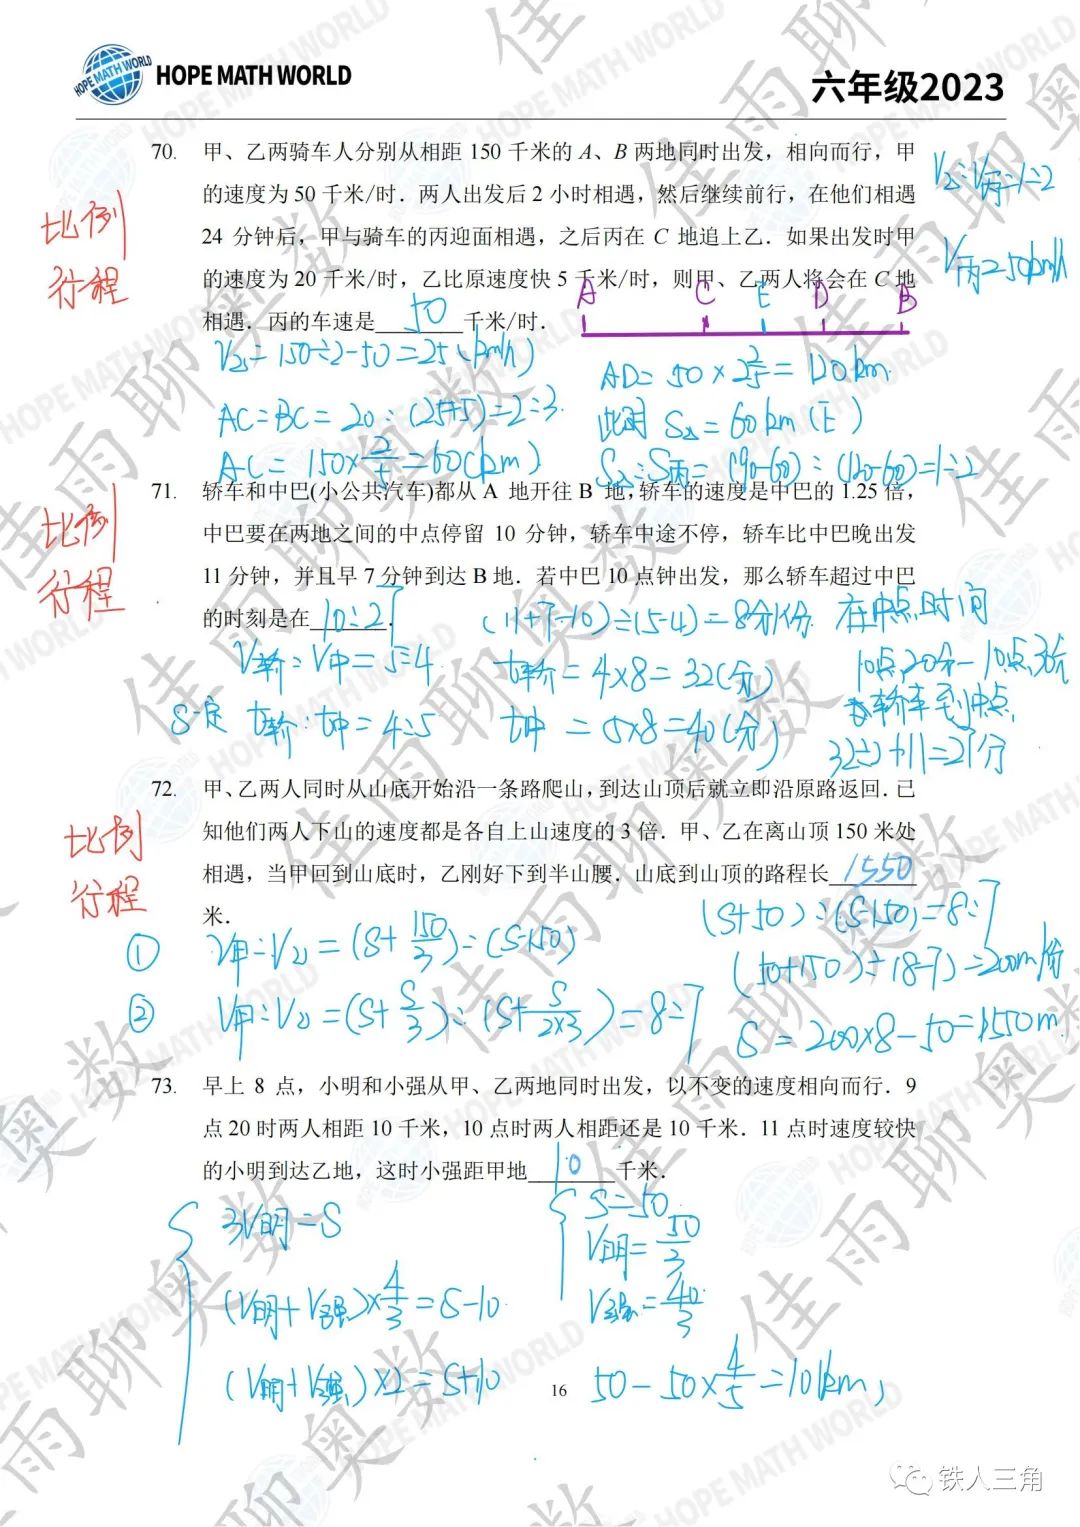 HOPE MATH WORLD
六年级2023
70. 甲、乙两骑车人分别从相距 150 千米的 A、B 两地同时出发，相向而行，甲
的速度为 50 千米/时．两人出发后 2 小时相遇，然后继续前行，在他们相遇
24 分钟后，甲与骑车的丙迎面相遇，之后丙在 C 地追上乙．如果出发时甲
的速度为 20 千米/时，乙比原速度快 5 千米/时，则甲、乙两人将会在 C 地
相遇．丙的车速是 50 千米/时．
比例
行程
V乙:V丙=1:2
V丙=50km/h
A C E D B
V乙=150÷2-50=25(km/h)
AC:BC=20:(25+5)=2:3
AC=150×2/5=60(km)
AD=50×2 2/5=120km
此时 S乙=60km(E)
S乙:S丙=(90-60):(120-60)=1:2
71. 轿车和中巴(小公共汽车)都从 A 地开往 B 地，轿车的速度是中巴的 1.25 倍，
中巴要在两地之间的中点停留 10 分钟，轿车中途不停，轿车比中巴晚出发
11 分钟，并且早 7 分钟到达 B 地．若中巴 10 点钟出发，那么轿车超过中巴
的时刻是在 10:27．
比例
行程
V轿:V中=5:4
S一定 t轿:t中=4:5
(11+7-10)÷(5-4)=8分/份
t轿=4×8=32(分)
t中=5×8=40(分)
在中点时间
10点20分-10点30分
轿车到中点
32÷2+11=27分
72. 甲、乙两人同时从山底开始沿一条路爬山，到达山顶后就立即沿原路返回．已
知他们两人下山的速度都是各自上山速度的 3 倍．甲、乙在离山顶 150 米处
相遇，当甲回到山底时，乙刚好下到半山腰．山底到山顶的路程长 1550
米．
比例
行程
① V甲:V乙=(S+150/3):(S-150)
② V甲:V乙=(S+S/3):(S+S/2×3)=8:7
(S+50):(S-150)=8:7
(50+150)÷(8-7)=200m/份
S=200×8-50=1550m
73. 早上 8 点，小明和小强从甲、乙两地同时出发，以不变的速度相向而行．9
点 20 时两人相距 10 千米，10 点时两人相距还是 10 千米．11 点时速度较快
的小明到达乙地，这时小强距甲地 10 千米．
3V明=S
(V明+V强)×4/3=S-10
(V明+V强)×2=S+10
S=50
V明=50/3
V强=40/3
50-50×4/5=10km
16
铁人三角
佳雨聊奥数